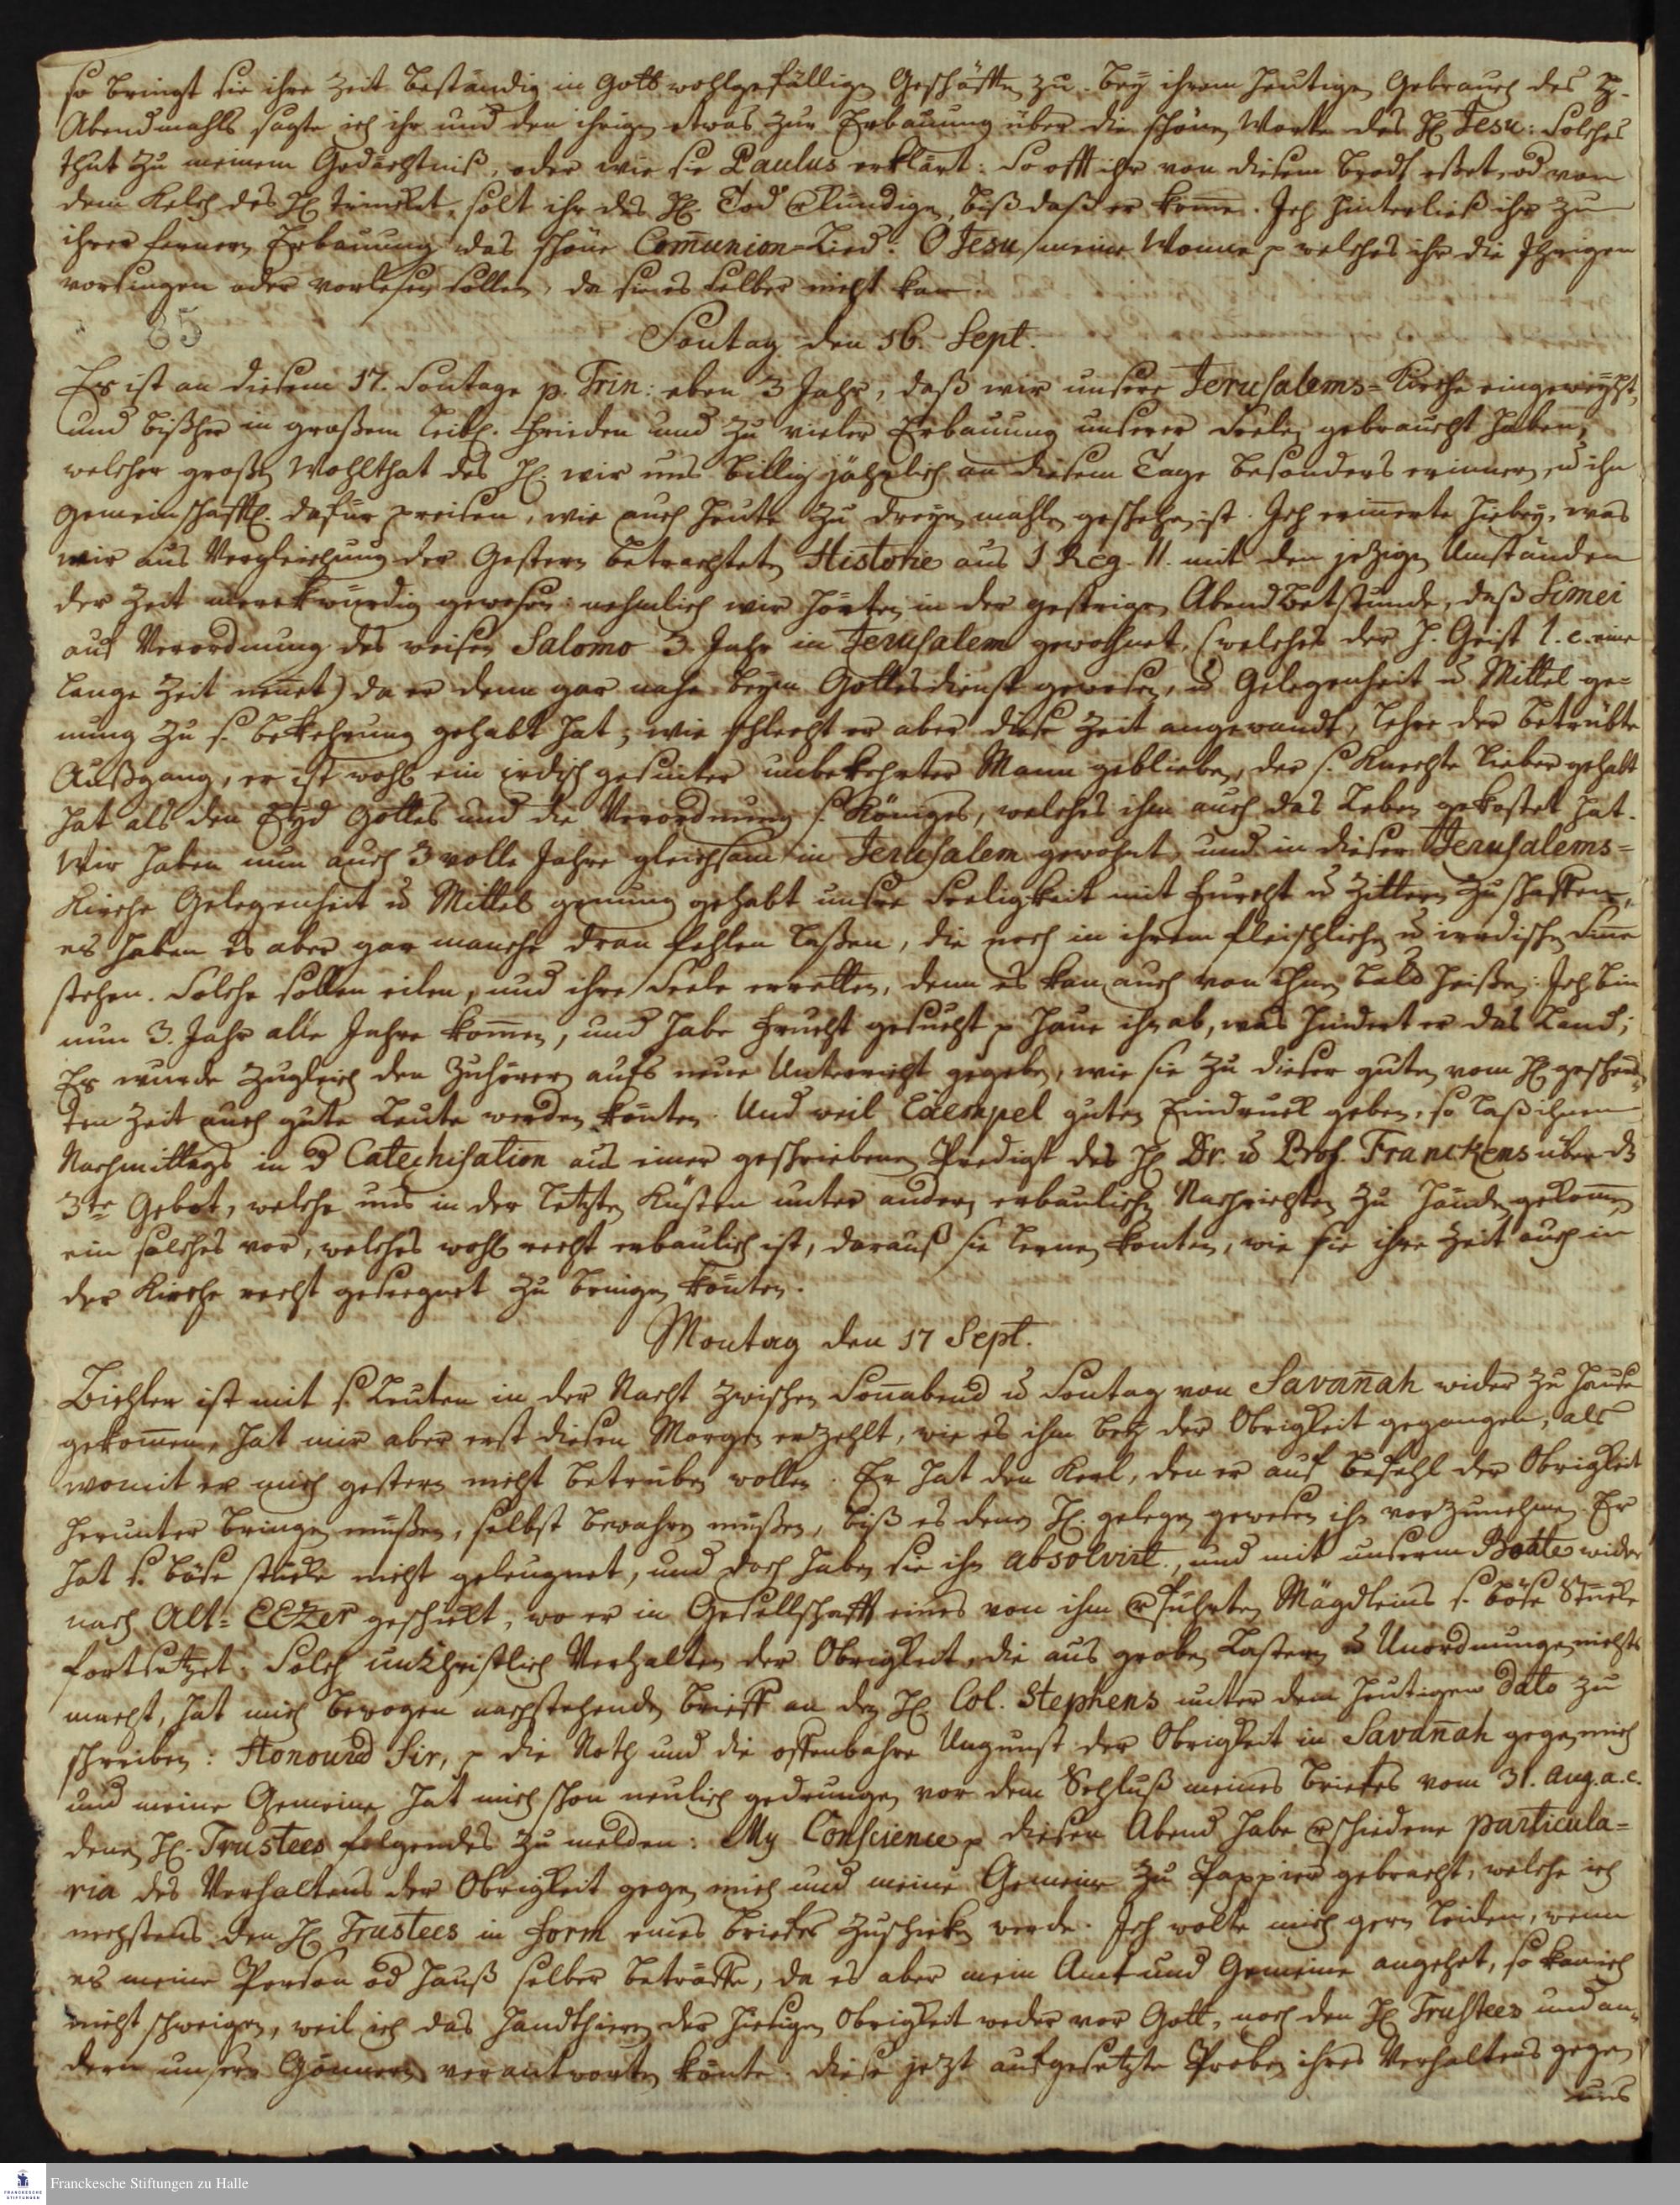 so bringt sie ihre Zeit beständig in Gott wohlgefälligen Geschäften zu. Bey ihrem heutigen Gebrauch des H.
Abendmahls sagte ich ihr und den ihrigen etwas zur Erbauung über die schöne Worte des H Jesu: Solches
thut zu meinem Gedächtniß, oder wie sie Paulus erklärt: So offt ihr von diesem Brodt eßet, od von
dem Kelch des H trincket, solt ihr des H. Tod verkündigen, biß daß er kome. Ich hinterließ ihr zu
ihrer fernern Erbauung das schöne Comunion-Lied: O Jesu, meine Wonne p welches ihr die Ihrigen
vorsingen oder vorlesen sollen, da sie es selber nicht kan.
65
Sontag den 16. Sept.
Es ist an diesem 17. Sontage p. Trin: eben 3 Jahr, daß wir unsere Jerusalems-Kirche eingeweyht,
und bißher in großem leibl. Frieden und zu vieler Erbauung unserer Seelen gebraucht haben,
welcher großen Wohlthat des H. wir uns billig jährlich an diesem Tage besonders erinnern, u ihn
gemeinschafftl. dafür preisen, wie auch heute zu dreyen mahlen geschehen ist. Ich erinerte hiebey, was
wir aus Vergleichung der Gestern betrachteten Historie aus 1 Reg. 11. mit den jetzigen Umständen
der Zeit merckwürdig gewesen: nehmlich wir hörten in der gestrigen Abendbetstunde, daß Simei
auf Verordnung des weisen Salomo 3. Jahr in Jerusalem gewohnet, (welches der H. Geist l. c. eine
lange Zeit nennet) da er denn gar nahe beym Gottesdienst gewesen, u Gelegenheit u Mittel ge-
nung zu s. Bekehrung gehabt hat; wie schlecht er aber diese Zeit angewandt, lehre der betrübte
Außgang, er ist wohl ein irdisch gesinter unbekehrter Mann geblieben, der s. Knechte lieber gehabt
hat als den Eyd Gottes und die Verordnung s. Königes, welches ihm auch das Leben gekostet hat.
Wir haben nun auch 3 volle Jahre gleichsam in Jerusalem gewohnt, und in dieser Jerusalems-
Kirche Gelegenheit u Mittel genung gehabt unsre Seeligkeit mit Furcht u Zittern zu schaffen,
es haben es aber gar manche dran fehlen laßen, die noch in ihrem fleischlichen u irrdischen Sinne
stehen. Solche sollen eilen, und ihre Seele erretten, denn es kan auch von ihnen bald heißen: Ich bin
nun 3. Jahr alle Jahre komen, und habe Frucht gesucht p haue ihn ab, was hindert er das Land;
Es wurde zugleich den Zuhörern aufs neue Unterricht gegeben, wie sie zu dieser guten vom H geschenck-
ten Zeit auch gute Leute werden könten. Und weil Exempel guten Eindruck geben, so laß ihnen
Nachmittags in d Catechisation aus einer geschriebenen Predigt des H Dr. u Prof. Franckens über dz
3te Gebot, welche uns in der letzten Kisten unter andern erbaulichen Nachrichten zu Händen gekomen
ein solches vor, welches wohl recht erbaulich ist, darauß sie lernen konten, wie sie ihre Zeit auch in
der Kirche recht geseegnet zu bringen könten.
Montag den 17 Sept.
Bichler ist mit s. Leuten in der Nacht zwischen Sonabend u Sontag von Savanah wider zu Hause
gekommen, hat mir aber erst diesen Morgen erzehlt, wie es ihm bey der Obrigkeit gegangen, als
womit er mich gestern nicht betrüben wollen. Er hat den Kerl, den er auf Befehl der Obrigkeit
herunter bringen müßen, selbst bewahren müßen, biß es denen H. gelegen gewesen ihn vorzunehmen. Er
hat s. böse stücke nicht geleugnet, und doch haben sie ihn absolvirt, und mit unserm Boate wider
nach Alt-EEzer geschickt, wo er in Gesellschafft eines von ihm verführten Mägdleins s. böse Stücke
fortsetzet. Solch unchristlich Verhalten der Obrigkeit, die aus groben Lastern u Unordnungen nichts
macht, hat mich bewogen nachstehenden Brieff an den H Col. Stephens unter dem heutigen dato zu
schreiben: Honourd Sir, p die Noth und die offenbahre Ungunst der Obrigkeit in Savanah gegen mich
und meine Gemeine hat mich schon neulich gedrungen vor dem Schluß meines Briefes vom 31. Aug. a. c.
denen H. Trustees folgendes zu melden: My Conscience p diesen Abend habe verschiedene particula-
ria des Verhaltens der Obrigkeit gegen mich und meine Gemeine zu Pappier gebracht, welche ich
nechstens den H Trustees in Form eines Briefes zuschicken werde. Ich wolte mich gern leiden, wenn
es meine Person od Hauß selber beträffe, da es aber mein Amt und Gemeine angehet, so kan ich
nicht schweigen, weil ich das Handthieren der hiesigen Obrigkeit weder vor Gott, noch den H Trustees und an-
dern unsern Gönnern verantworten könte. Diese jetzt aufgesetzte Proben ihres Verhaltens gegen
uns
Franckesche Stiftungen zu Halle